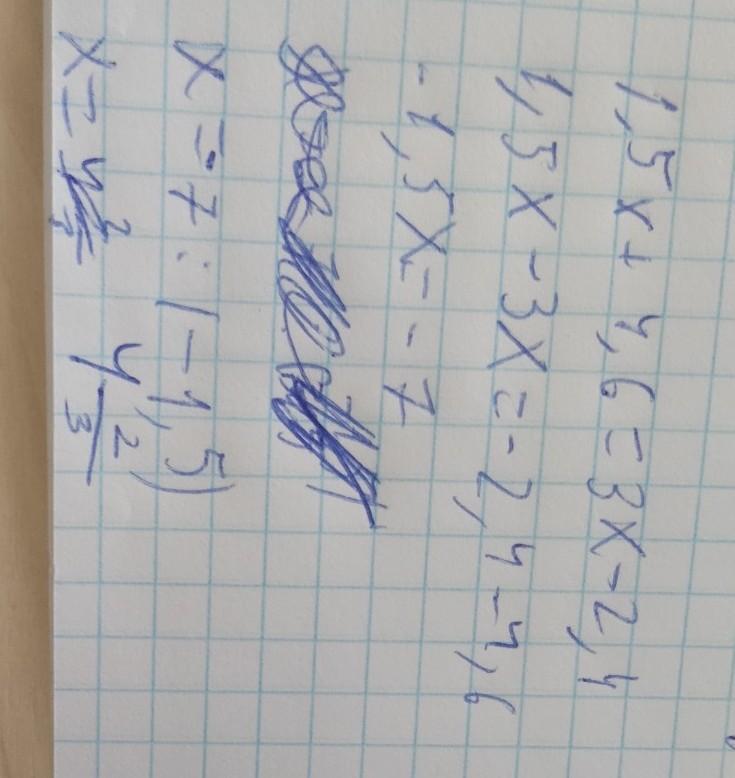 1,5x + 4,6 = 3x - 2,4
1,5x - 3x = -2,4 - 4,6
-1,5x = -7
x = -7 : (-1,5)
x = 4 2/3